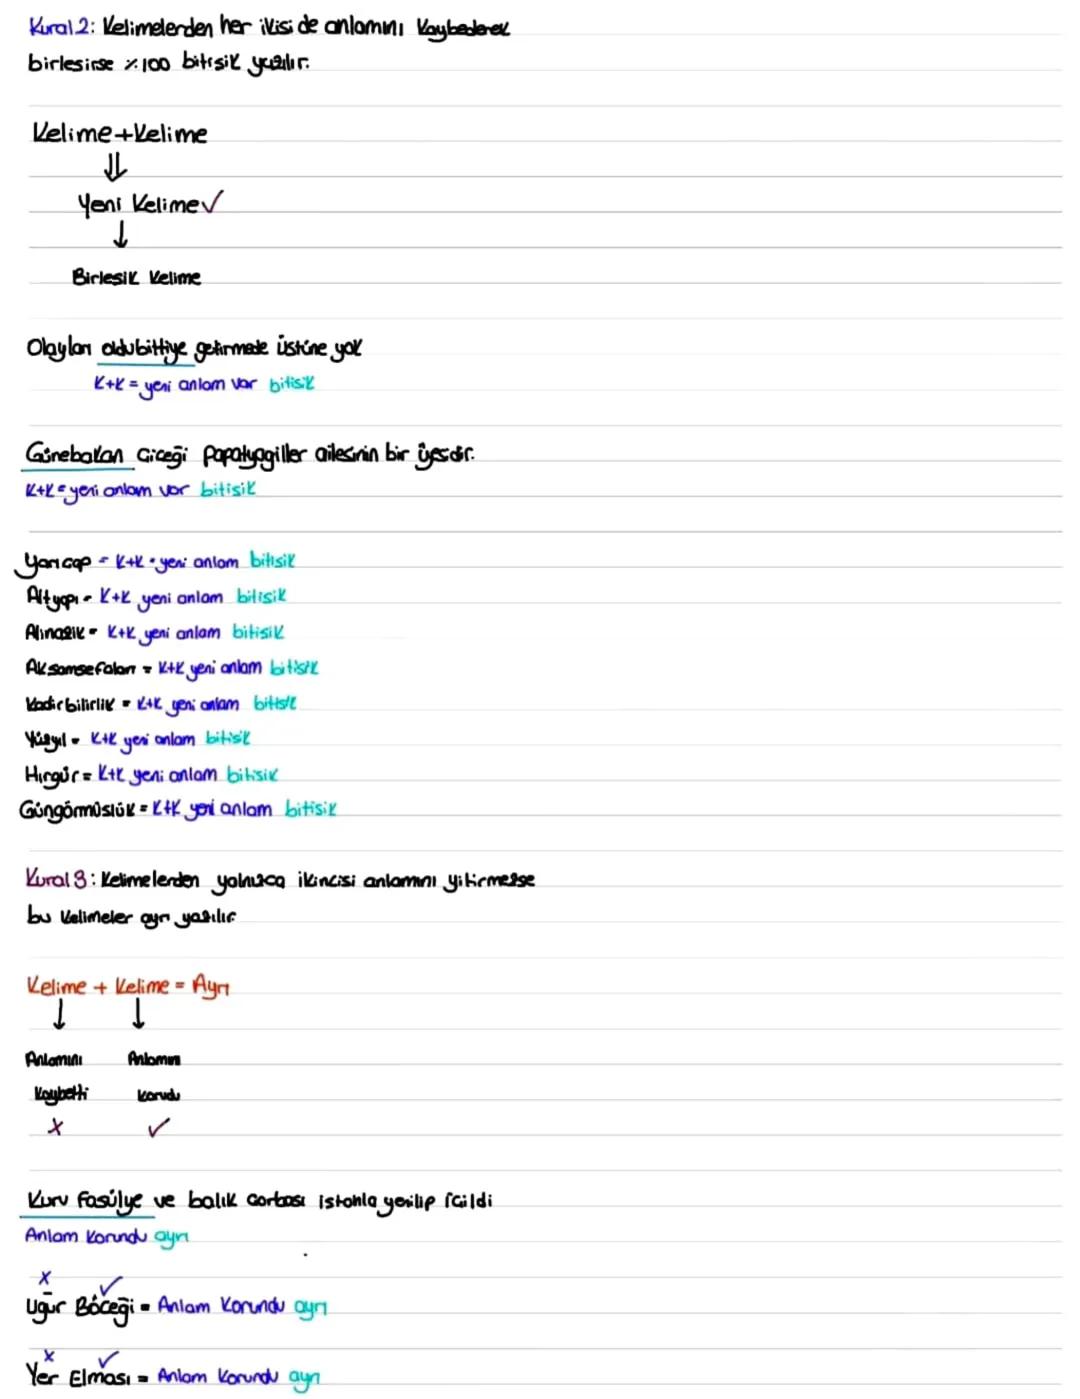 Kural 2: Kelimelerden her ikisi de anlamını kaybederek
birleşirse %100 bitişik yazılır.
Kelime+Kelime
⇓
Yeni Kelime✓
↓
Birleşik Kelime
Olayları oldubittiye getirmede üstüne yok
K+K = yeni anlam var bitişik
Günebakan çiçeği papatyagiller ailesinin bir üyesidir.
K+K = yeni anlam var bitişik
Yarıçap = K+K = yeni anlam bitişik
Altyapı = K+K yeni anlam bitişik
Alınazik = K+K yeni anlam bitişik
Akşamsefaları = K+K yeni anlam bitişik
Kadirbilirlik = K+K yeni anlam bitişik
Yüzyıl = K+K yeni anlam bitişik
Hırgür = K+K yeni anlam bitişik
Güngörmüşlük = K+K yeni anlam bitişik
Kural 3: Kelimelerden yalnızca ikincisi anlamını yitirmezse
bu kelimeler ayrı yazılır
Kelime + Kelime = Ayrı
↓ ↓
Anlamını Anlamını
Kaybetti Korudu
x ✓
Kuru fasülye ve balık çorbası iştahla yenilip içildi
Anlam Korundu ayrı
x ✓
Uğur Böceği = Anlam Korundu ayrı
x ✓
Yer Elması = Anlam Korundu ayrı